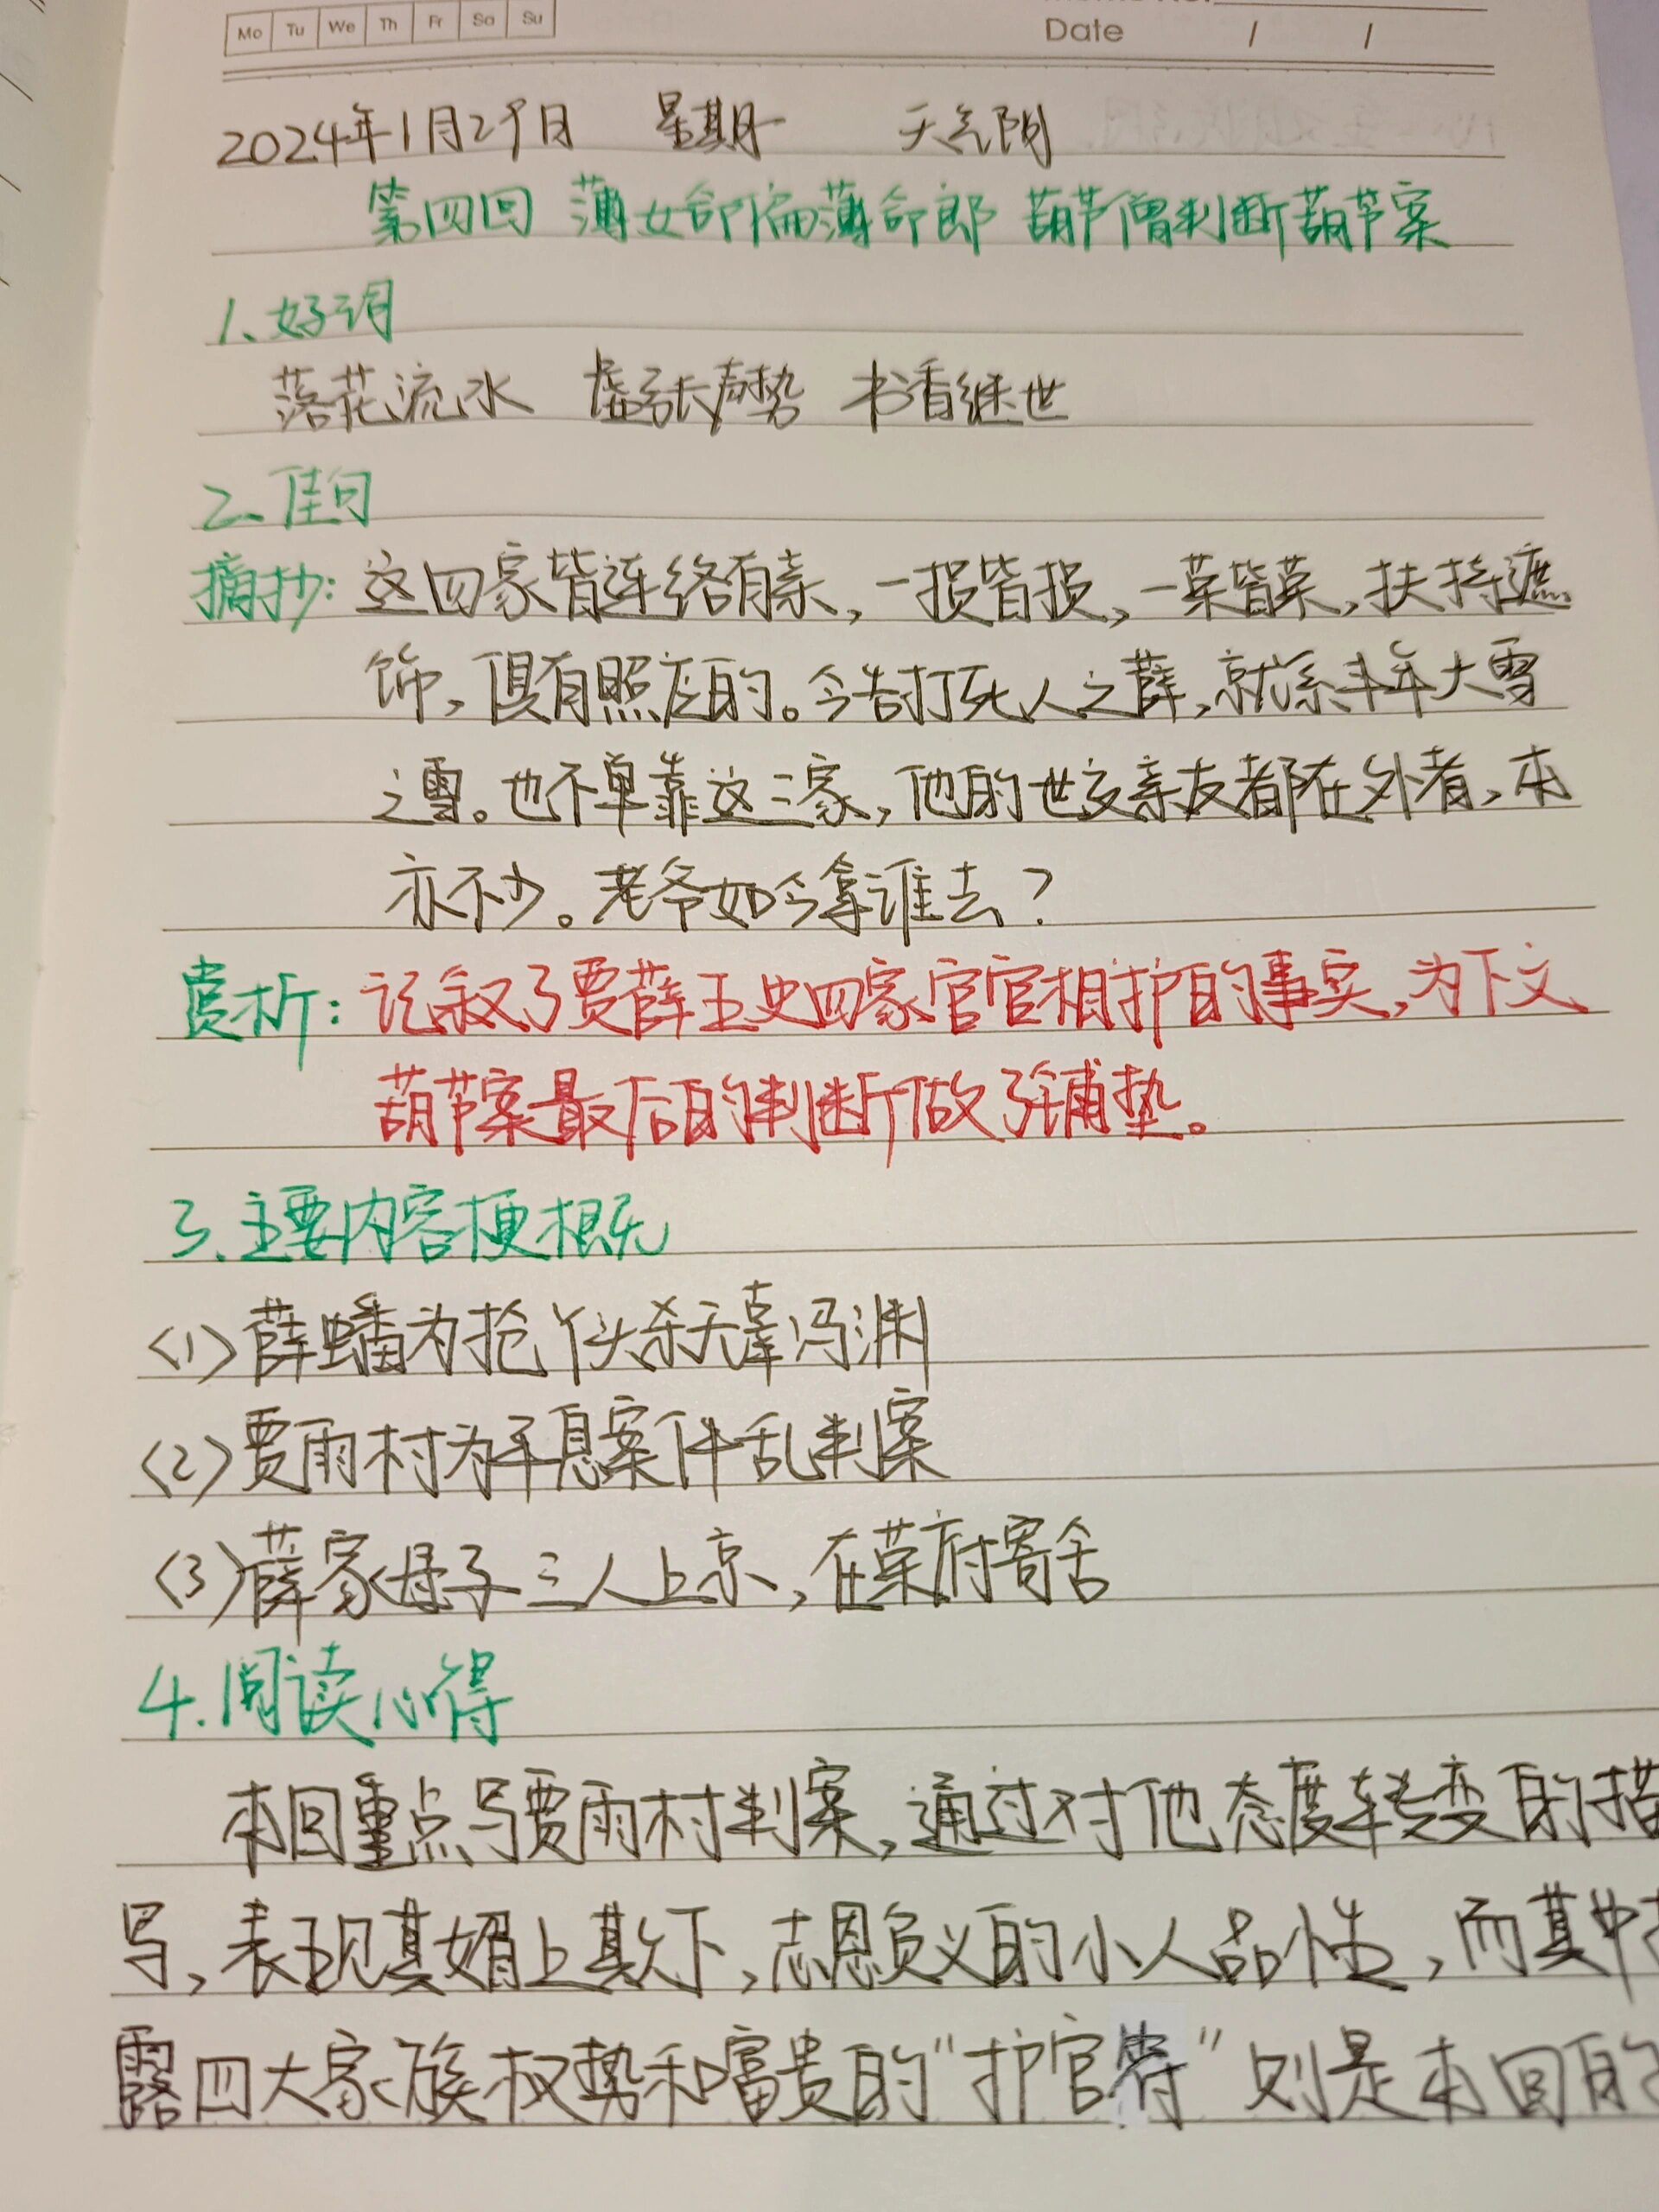 Mo Tu We Th Fr Sa Su
Date / /
2024年1月29日 星期一 天气阴
第四回 薄女命偏薄命郎 葫芦僧判断葫芦案
1、好词
落花流水 虚张声势 书香继世
2、佳句
摘抄：这四家皆连络有亲，一损皆损，一荣皆荣，扶持遮
饰，俱有照应的。今告打死人之薛，就系丰年大雪
之雪。也不单靠这三家，他的世交亲友都在外者，本
亦不少。老爷如今拿谁去？
赏析：记叙了贾薛王史四家官官相护的事实，为下文
葫芦案最后的判断做了铺垫。
3、主要内容梗概
(1)薛蟠为抢丫头杀无辜冯渊
(2)贾雨村为平息案件乱判案
(3)薛家母子三人上京，在荣府寄舍
4.阅读心得
本回重点写贾雨村判案，通过对他态度转变的描
写，表现其媚上欺下，忘恩负义的小人品性，而其中
露四大家族权势和富贵的“护官符”则是本回的